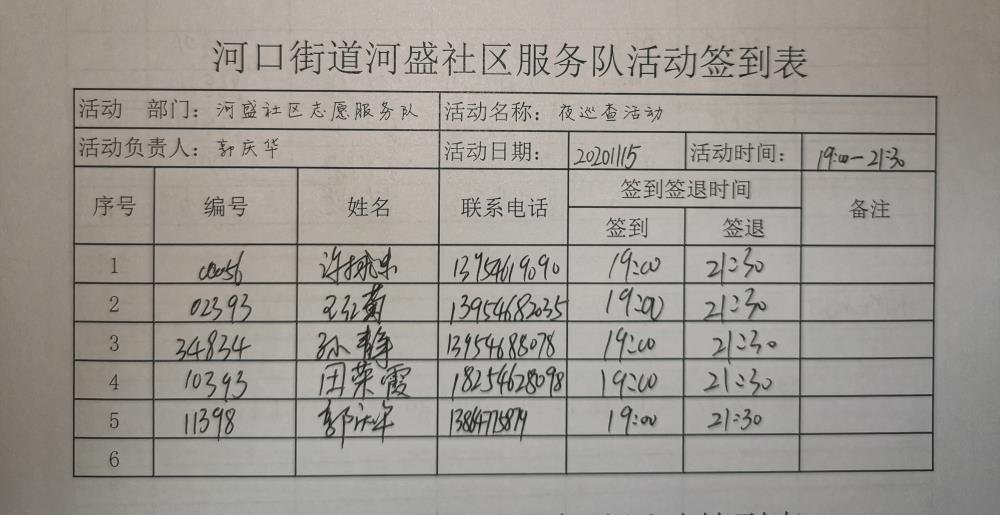 河口街道河盛社区服务队活动签到表
活动 部门：河盛社区志愿服务队 活动名称：夜巡查活动
活动负责人：郭庆华 活动日期：20201115 活动时间：19:00-21:30
序号 编号 姓名 联系电话 签到签退时间 备注
签到 签退
1 00056 13954619090 19:00 21:30
2 02393 王红菊 13954682035 19:00 21:30
3 34834 孙静 13954688078 19:00 21:30
4 10393 田荣霞 18254628098 19:00 21:30
5 11398 郭庆华 19:00 21:30
6